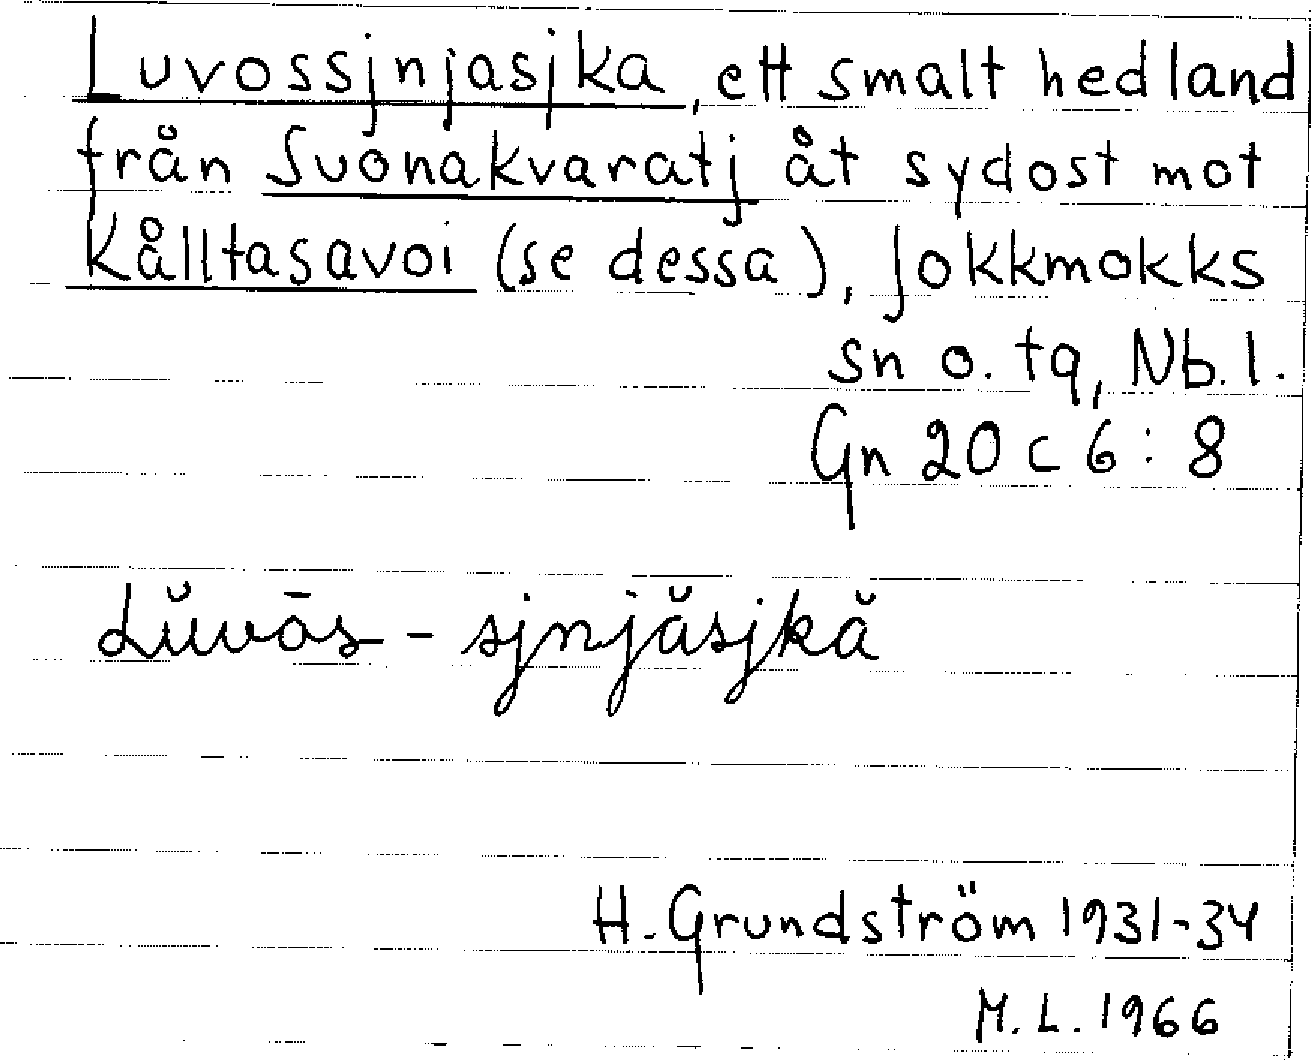 Luvossjnjasjka, ett smalt hedland
från Suonakvaratj åt sydost mot
Kålltasavoi (se dessa), Jokkmokks
sn o. tg, Nb. l.
Gn 20 c 6 : 8
Lŭvōs - sjnjăsjkă
H. Grundström 1931-34
M. L. 1966